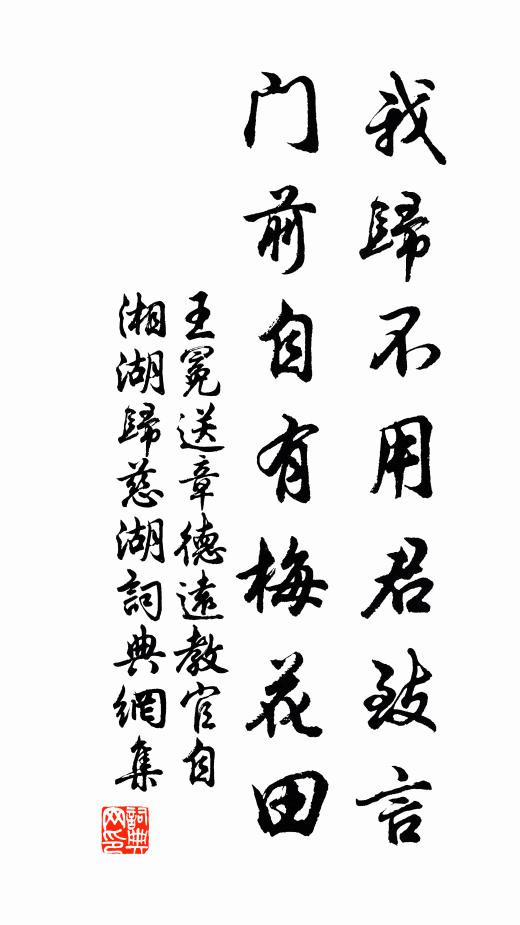 我歸不用君致言
门前自有梅花田
王冕送章德遠教官自
湘湖歸慈湖詞典網集
詞典网印